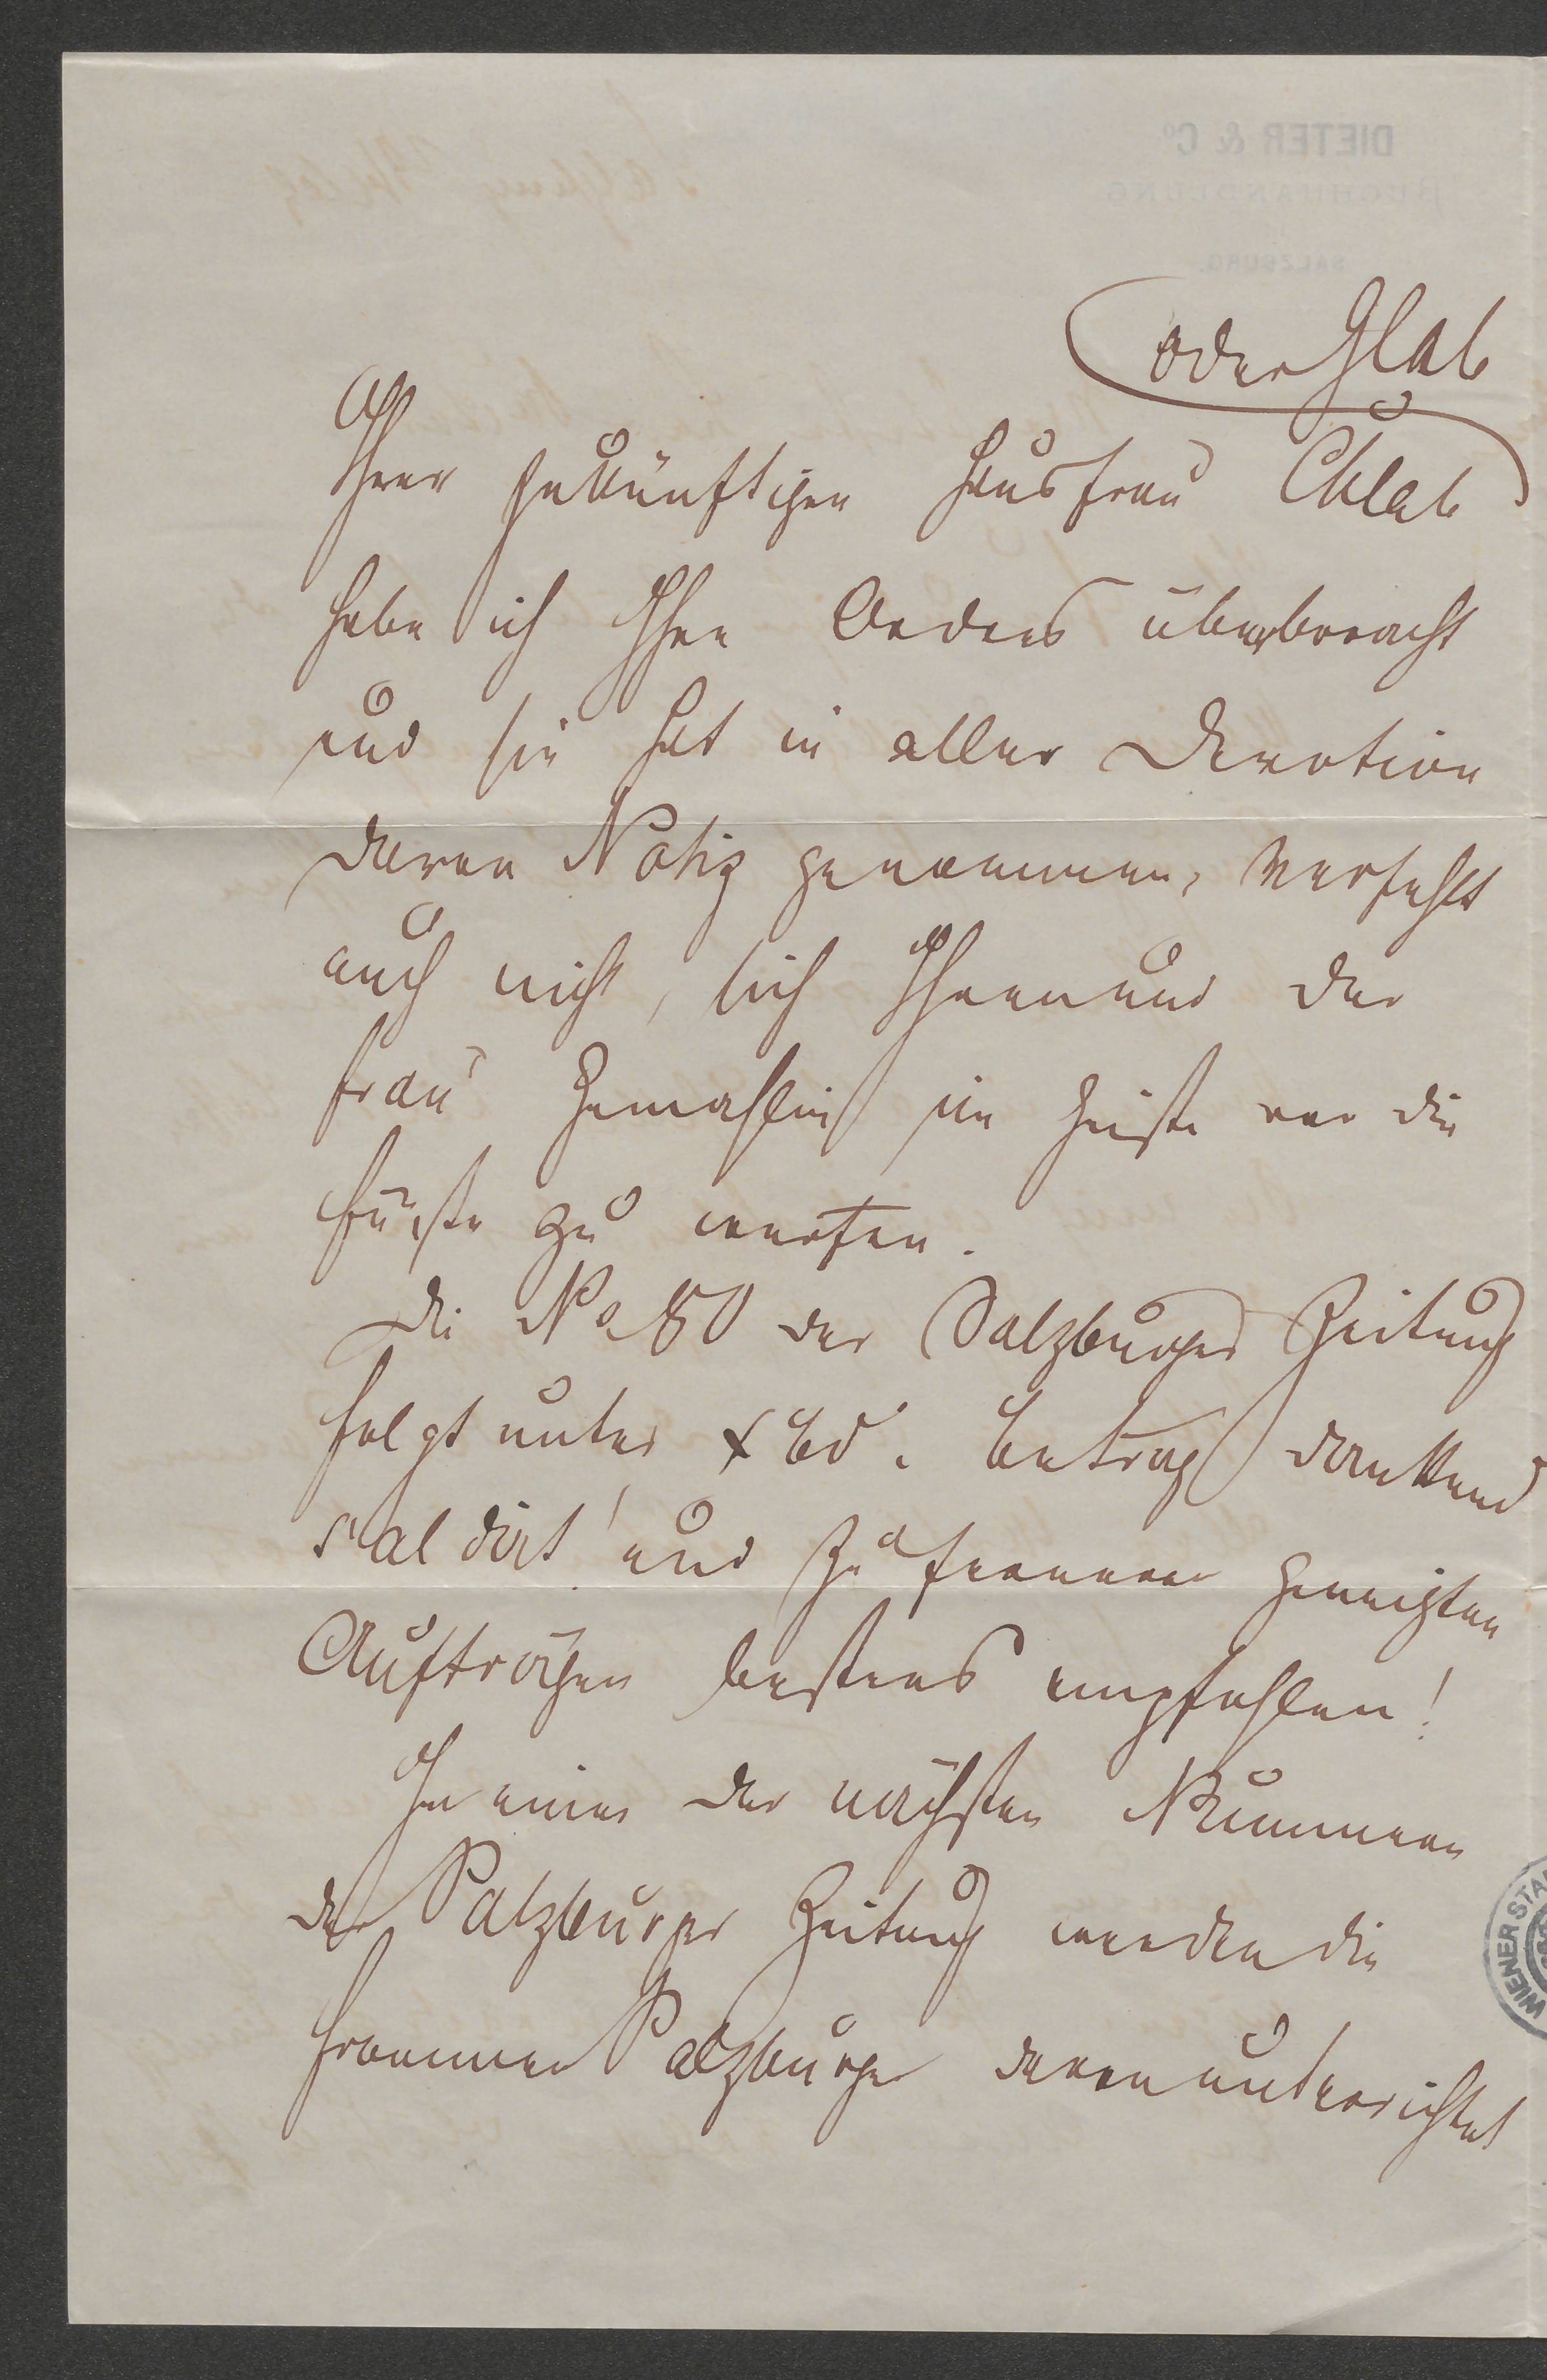 oder Glab
Ihrer zukünftigen Hausfrau Chlab
habe ich Ihre Ordres überbracht
und sie hat in aller Devotion
davon Notiz genommen, verfehlt
auch nicht, sich Ihnen und der
Frau Gemahlin im Geiste vor die
Füsse zu werfen.
Die No 80 der Salzburger Zeitung
folgt unter Xbd. Betrag dankend
saldirt! und zu ferneren geneigten
Aufträgen bestens empfohlen!
In einer der nächsten Nummern
der Salzburger Zeitung werden die
frommen Salzburger davon unterrichtet
DIETER & Co
BUCHHANDLUNG
SALZBURG
WIENER STA